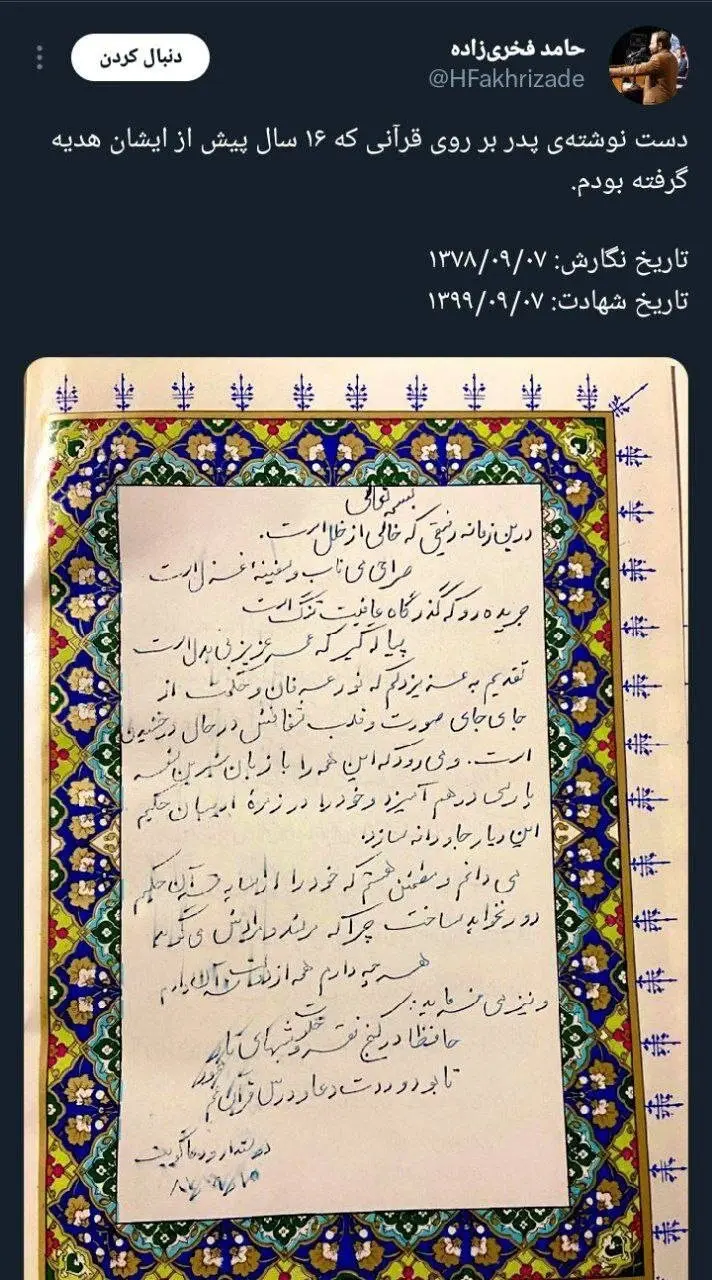 حامد فخری‌زاده
@HFakhrizade
دنبال کردن
دست نوشته‌ی پدر بر روی قرآنی که ۱۶ سال پیش از ایشان هدیه
گرفته بودم.
تاریخ نگارش: ۱۳۷۸/۰۹/۰۷
تاریخ شهادت: ۱۳۹۹/۰۹/۰۷
بسمه تعالی
درین زمانه رفیقی که خالی از خلل است.
صراحی می ناب و سفینهٔ غزل است
جریده رو که گذرگاه عافیت تنگ است
پیاله گیر که عمر عزیز بی بدل است
تقدیم به عزیزدلم که نور عرفان و حکمت از
جای جای صورت و قلب شفافش در حال درخشیدن
است. و می رود که این همه را با زبان شیرین
پارسی درهم آمیزد و خود را در زمرهٔ ادیبان حکیم
این دیار جاودانه سازد.
می دانم و مطمئن هستم که خود را از سایه قرآن حکیم
دور نخواهد ساخت چرا که
هر چه دارم همه از دولت قرآن دارم
و نیز می فرماید:
حافظا در کنج فقر و خلوت شبهای تار
تا بود وردت دعا و درس قرآن غم مخور